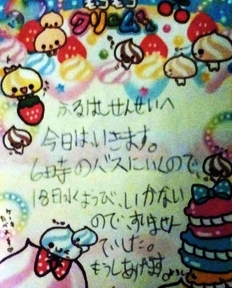 モコモコ
クリームくん
ふるはしせんせいへ
今日はいきます。
6時のバスにいくので
18日水ようび、いかない
ので、すいません
でした。
もうしあげます